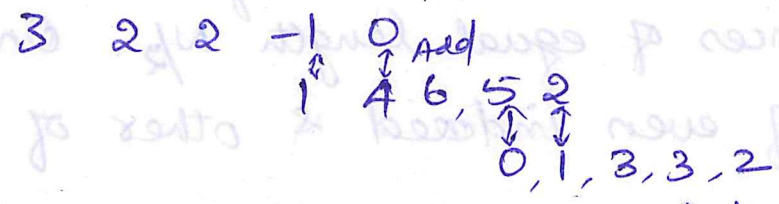 3 2 2 -1 0 Add
1 4 6, 5 2
0, 1, 3, 3, 2